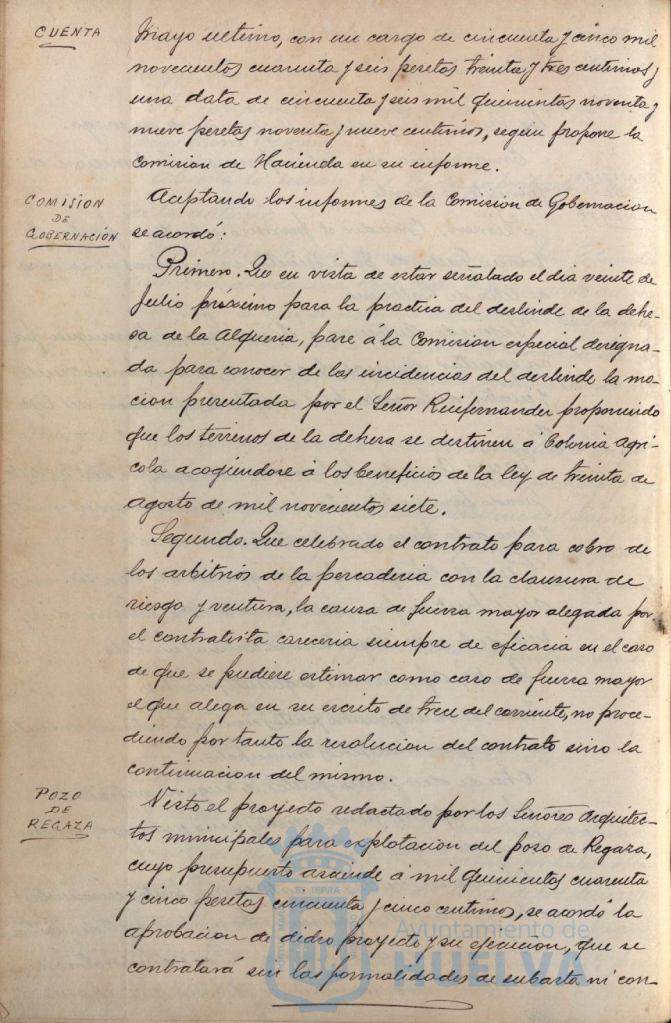 CUENTA
Mayo ultimo, con un cargo de cincuenta y cinco mil
novecientos cuarenta y seis pesetas treinta y tres centimos y
una data de cincuenta y seis mil quinientas noventa y
nueve pesetas noventa y nueve centimos, segun propone la
Comision de Hacienda en su informe.
COMISION
DE
GOBERNACIÓN
Aceptando los informes de la Comision de Gobernacion
se acordó:
Primero. Que en vista de estar señalado el dia veinte de
Julio próximo para la practica del deslinde de la dehe-
sa de la Alqueria, pase á la Comision especial designa-
da para conocer de las incidencias del deslinde la mo-
cion presentada por el Señor Ruifernandez proponiendo
que los terrenos de la dehesa se destinen á Colonia Agrí-
cola acogiéndose á los beneficios de la ley de treinta de
Agosto de mil novecientos siete.
Segundo. Que celebrado el contrato para cobro de
los arbitrios de la pescaderia con la clausura de
riesgo y ventura, la causa de fuerza mayor alegada por
el contratista careceria siempre de eficacia en el caso
de que se pudiese estimar como caso de fuerza mayor
el que alega en su escrito de trece del corriente, no proce-
diendo por tanto la resolucion del contrato sino la
continuacion del mismo.
POZO
DE
REGAZA
Visto el proyecto redactado por los Señores Arquitec-
tos municipales para explotacion del pozo de Regaza,
cuyo presupuesto asciende á mil quinientas cuarenta
y cinco pesetas cincuenta y cinco centimos, se acordó la
aprobacion de dicho proyecto y su ejecucion, que se
contratará sin las formalidades de subasta ni con-
Ayuntamiento de
HUELVA